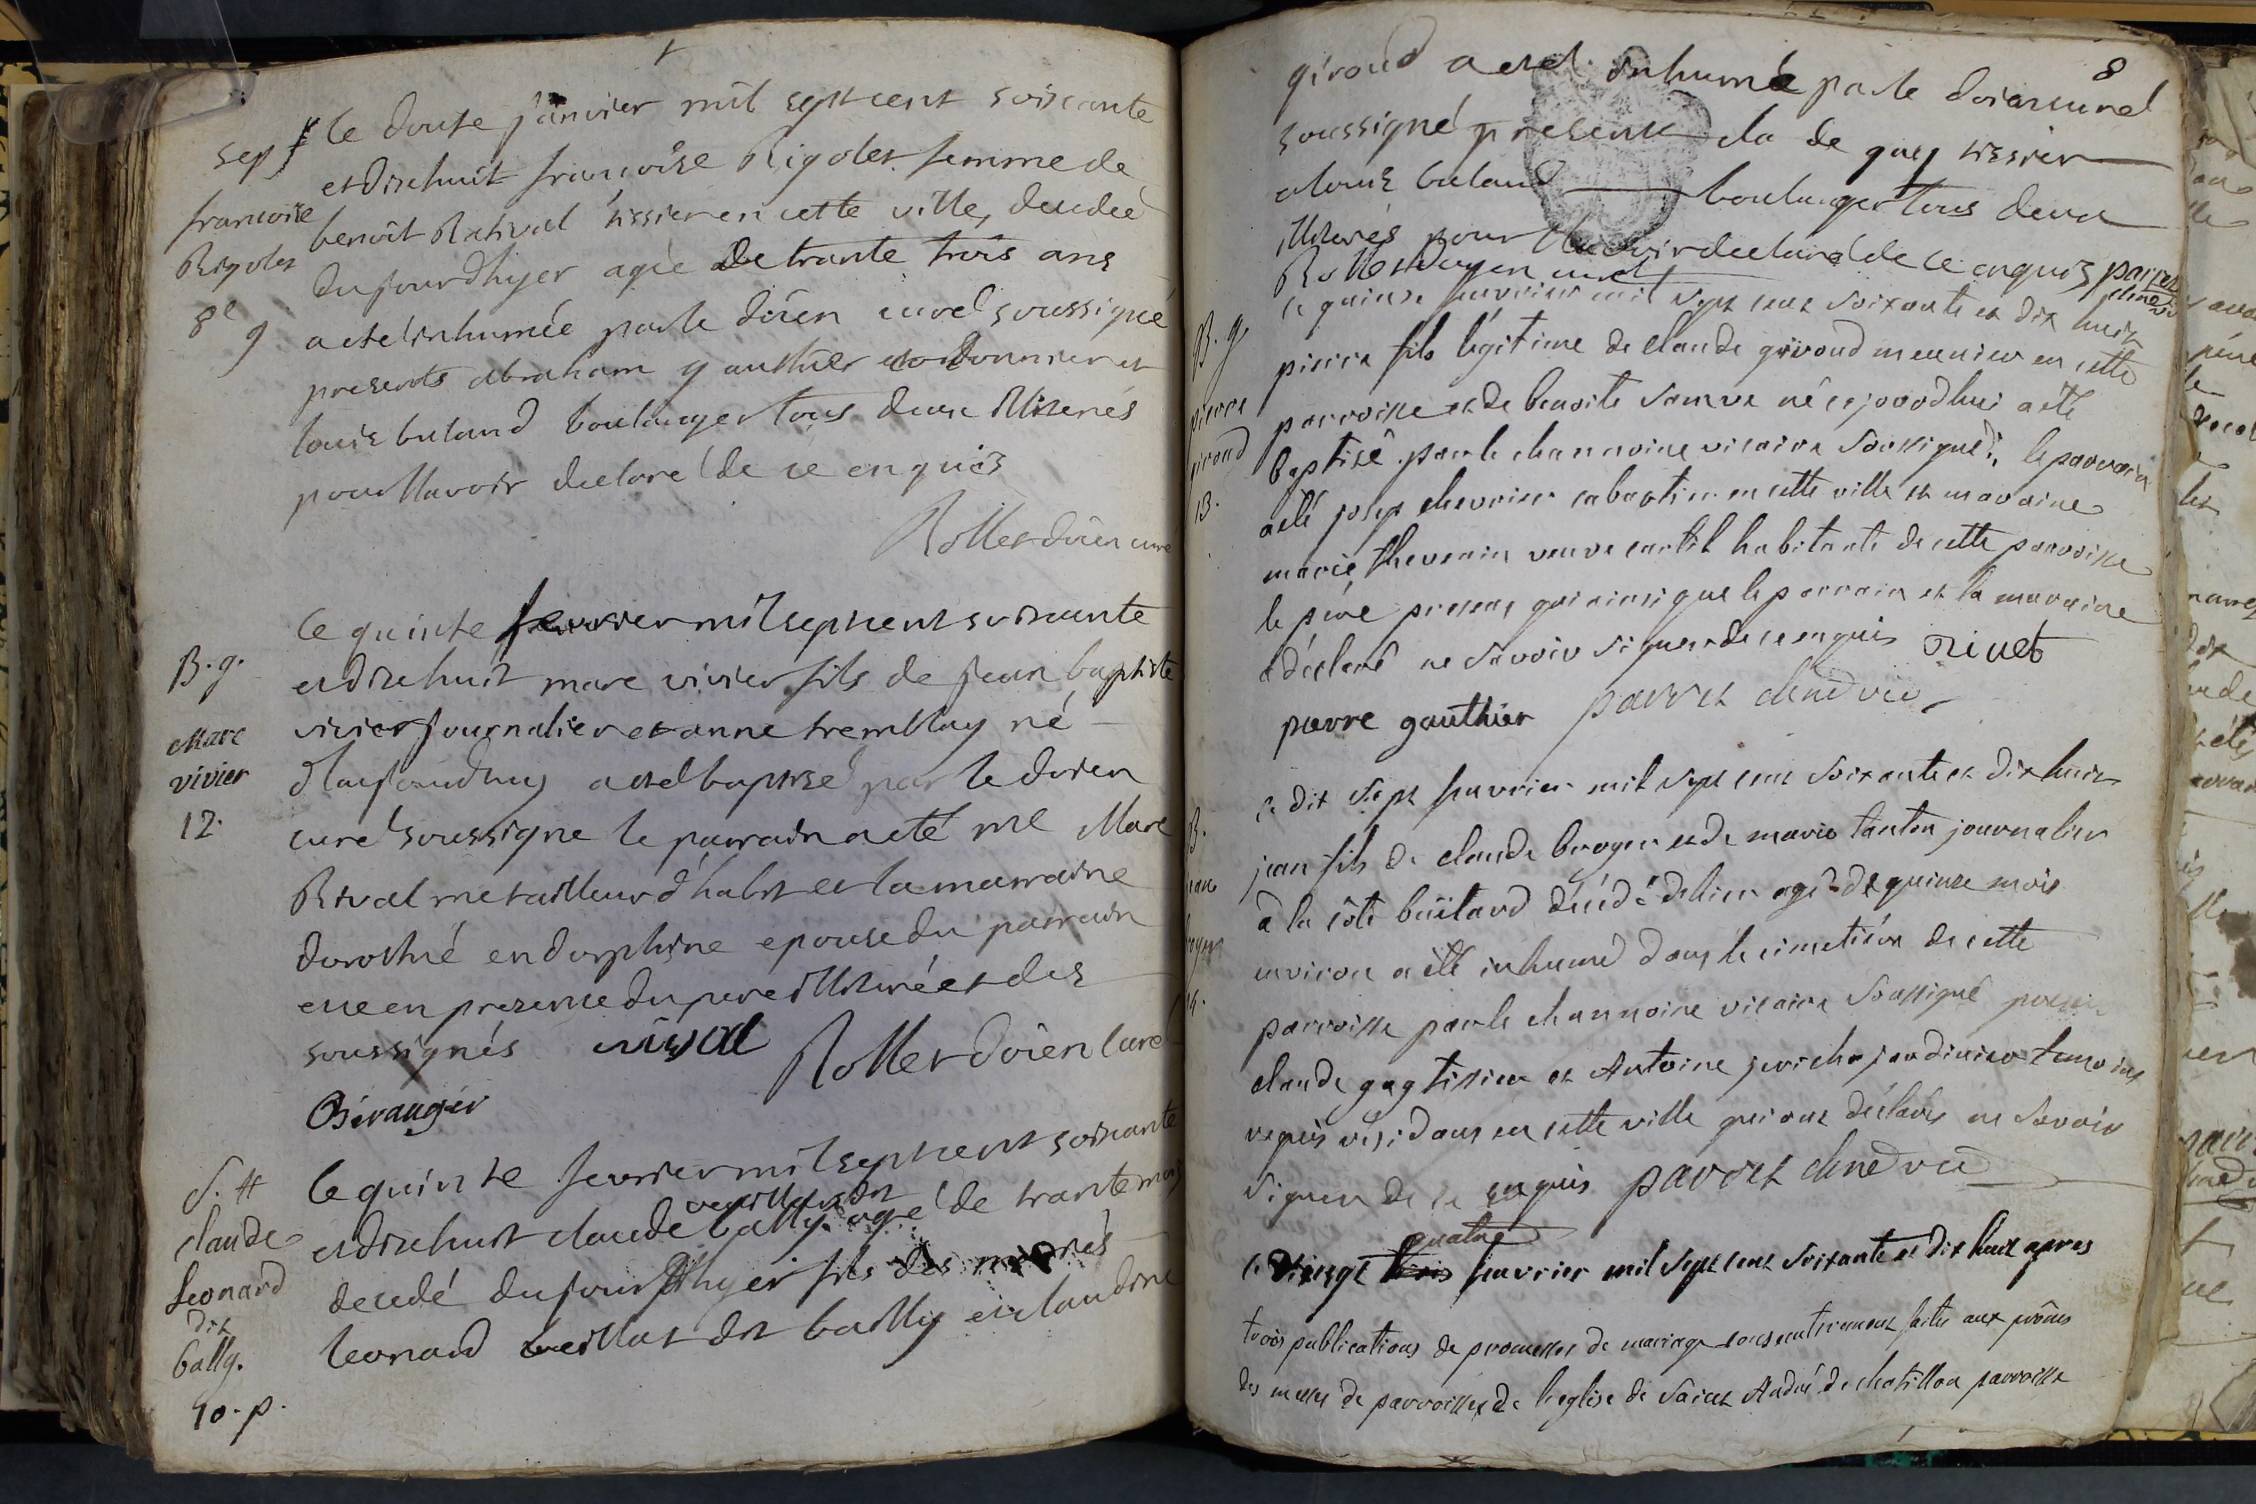 sep
francoise
Rigolet
8e
9
le douze janvier mil sept cent soixante
et dix huit francoise Rigolet femme de
benoit Rativel tissier en cette ville, decedeé
du jour d'hyer ageè de trante trois ans
a eté inhumée par le doïen curé soussigné
presents abraham gauthier cordonnier et
louis buland boulanger tous deux illiterés
pour l'avoir declaré de ce enquis
Rollet doïen curé
B. g.
Marc
vivier
12.
le quinze fevrier mil sept cent soixante
et dix huit marc vivier fils de jean baptiste
vivier journalier et anne tremblay né
d'laujourdhuy a eté baptisé par le doïen
curé soussigne le parrain a eté me Marc
Rival me tailleur d'habit et la marraine
dorothé endorphine epouse du parrain
en presence du pere illiteré et des
soussignés rival Rollet doïen curé
Béranger
S. tt
claude
Leonard
dit
bally.
10. p.
le quinze fevrier mil sept cent soixante
veillat dit
et dix huit claude bally. agé de trante mois
decedé du jour d'hyer fils des mariés
leonard veillat dit bailly et claudine
8
giroud a eté inhumé par le doïen curé
soussigné presents cla de guy tissier
et louis buland boulanger tous deux
illiterés pour l'avoir declaré de ce enquis
Rollet doyen curé
B. g
pierre
giroud
13.
le quinze fevrier mil sept cent soixante et dix huit
pierre fils légitime de claude giroud meunier en cette
parroisse et de benoite né ce jourdhui a été
baptisé par le channoine vicaire soussigné, le parrain
a été josep chevrier cabartier en cette ville et maraine
marie thevenin veuve habitante de cette parroisse
le père present qui ainsi que le parrain et la maraine
a déclaré ne savoir signer de ce enquis rivet
pierre gauthier parret chne vic
B.
jean
broyer
14.
le dix sept fevrier mil sept cent soixante et dix huit
jean fils de claude broyer et de marie tanton journalier
à la côte décédé d'hier agé de quinze mois
environ a été inhumé dans le cimetière de cette
parroisse par le channoine vicaire soussigné presents
claude gay tissier et Antoine jardinier temoins
requis résidans en cette ville qui ont déclarés ne savoir
signer de ce enquis parret chne vic
quatre
le vingt trois fevrier mil sept cent soixante et dix huit apres
trois publications de promesses de mariage consecutivement faites aux prônes
des messes de parroisses de l'eglise de Saint André de chatillon parroisse